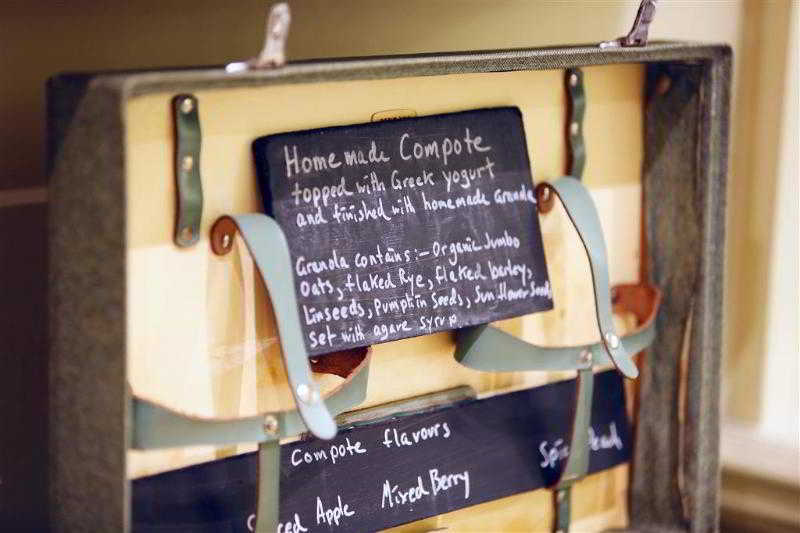 Homemade Compote
topped with Greek yogurt
and finished with homemade Granola
Granola contains:- Organic Jumbo
Oats, flaked Rye, flaked barley,
Linseeds, Pumpkin Seeds, Sunflower Seeds
set with agave syrup
Compote flavours
Apple Mixed Berry